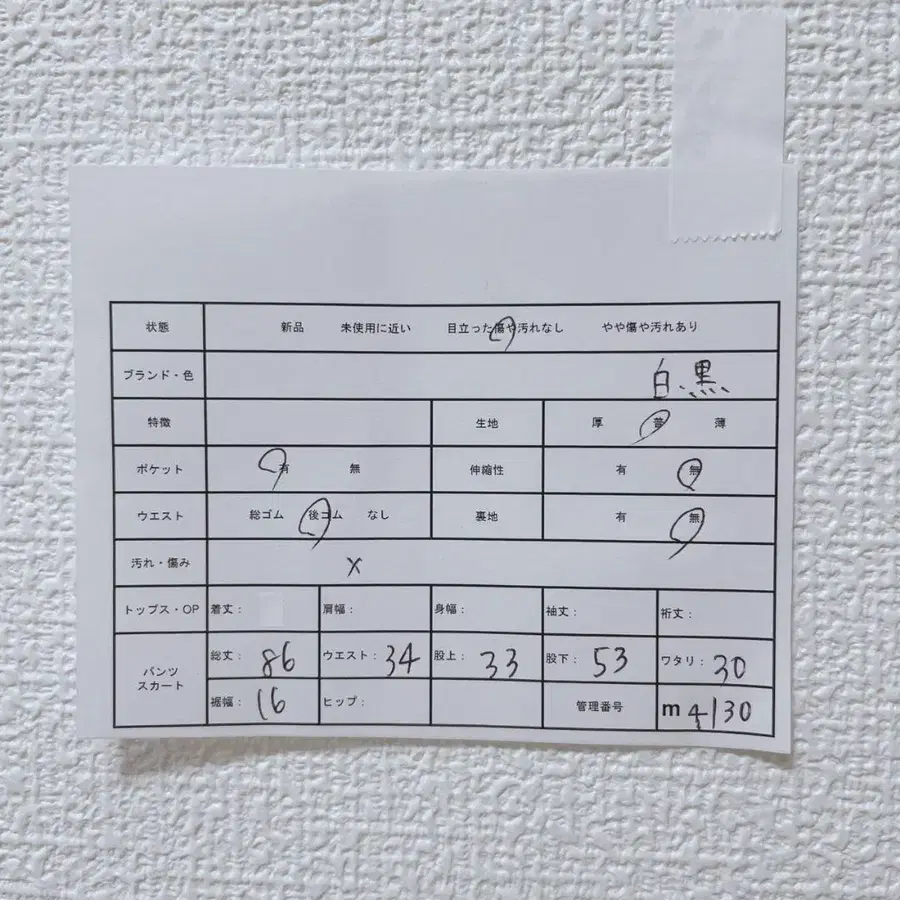 状態 新品 未使用に近い 目立った傷や汚れなし やや傷や汚れあり
ブランド・色 白、黒
特徴 生地 厚 普 薄
ポケット 有 無 伸縮性 有 無
ウエスト 総ゴム 後ゴム なし 裏地 有 無
汚れ・傷み x
トップス・OP 着丈: 肩幅: 身幅: 袖丈: 裄丈:
パンツ
スカート
総丈: 86 ウエスト: 34 股上: 33 股下: 53 ワタリ: 30
裾幅: 16 ヒップ: 管理番号 m 4130